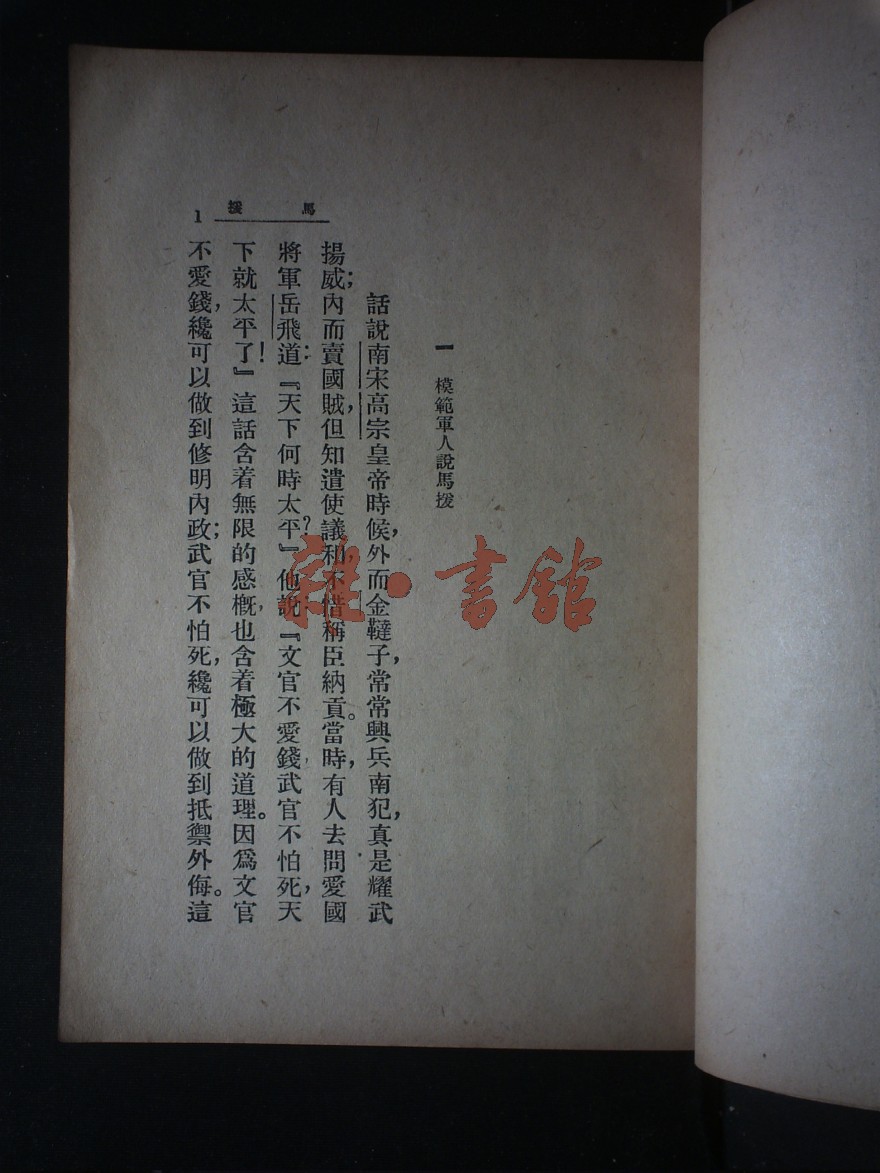 馬援
1
一 模範軍人說馬援
話說南宋高宗皇帝時候，外而金韃子，常常興兵南犯，真是耀武
揚威；內而賣國賊，但知遣使議和，不惜稱臣納貢。當時，有人去問愛國
將軍岳飛道：『天下何時太平？』他說：『文官不愛錢，武官不怕死，天
下就太平了！』這話含着無限的感概，也含着極大的道理。因爲文官
不愛錢，纔可以做到修明內政；武官不怕死，纔可以做到抵禦外侮。這
雜·書館